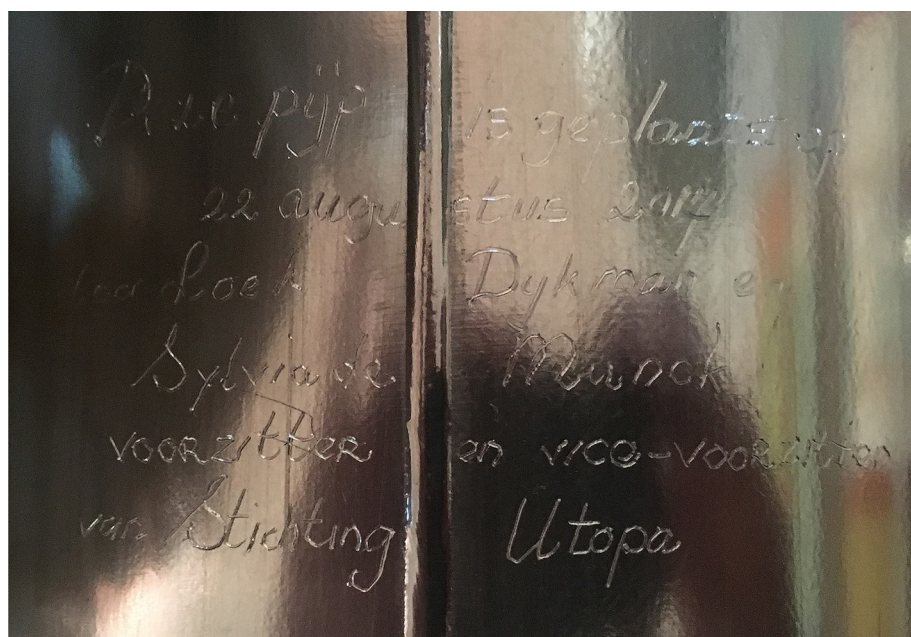 Deze pijp is geplaatst op
22 augustus 2017
door Loek Dijkman en
Sylvia de Munck
voorzitter en vice-voorzitter
van Stichting Utopa